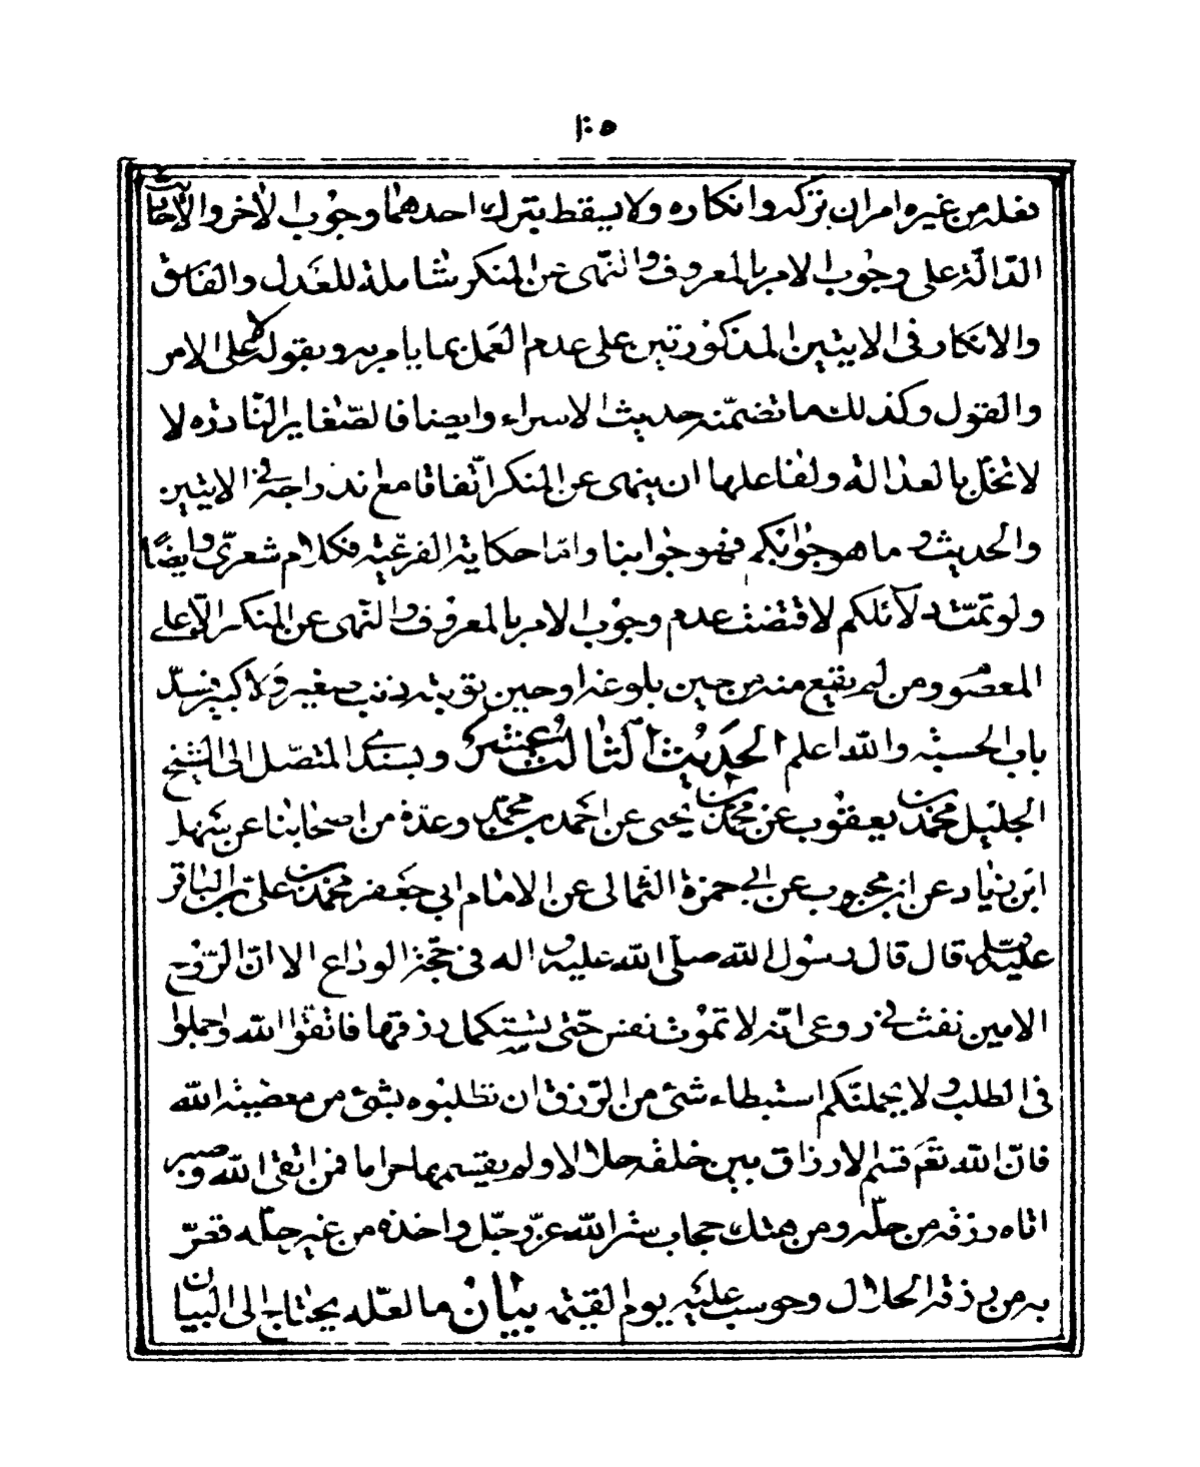 ١٠٥
فعله من غيره امران تركه وانكاره ولا يسقط بترك احدهما وجوب الاخر والايات
الدالة على وجوب الامر بالمعروف والنهى عن المنكر شاملة للعدل والفاسق
والانكار فى الايتين المذكورتين على عدم العمل بما يامر به ويقوله لا على الامر
والقول وكذلك ما تضمنه حديث الاسراء وايضا فالصغاير النادره لا
لا تخل بالعدالة ولفاعلها ان ينهى عن المنكر اتفاقا مع اندراجه فى الايتين
والحديث وما هو جوابكم فهو جوابنا واما حكاية الفرعية فكلام شعرى وايضًا
ولو تمت دلائلكم لاقتضت عدم وجوب الامر بالمعروف والنهى عن المنكر الا على
المعصوم ومن لم يقع منه من حين بلوغه او حين توبته ذنب صغير ولا كبير فينسد
باب الحسبة والله اعلم الحديث الثالث عشر وبسندى المتصل الى الشيخ
الجليل محمد بن يعقوب عن محمد بن يحيى عن احمد بن محمد وعدة من اصحابنا عن سهل
ابن زياد عن ابن محبوب عن ابى حمزة الثمالى عن الامام ابى جعفر محمد بن على الباقر
عليه السلام قال قال رسول الله صلى الله عليه واله فى حجة الوداع الا ان الروح
الامين نفث فى روعى انه لا تموت نفس حتى تستكمل رزقها فاتقوا الله واجملوا
فى الطلب ولا يحملنكم استبطاء شئ من الرزق ان تطلبوه بشئ من معصية الله
فان الله تعم قسم الارزاق بين خلقه حلالا ولم يقسمها حراما فمن اتقى الله وصبر
اتاه رزقه من حله ومن هتك حجاب ستر الله عز وجل واخذه من غير حله قص
به من رزقه الحلال وحوسب عليه يوم القيمة بيان ما لعله يحتاج الى البيان